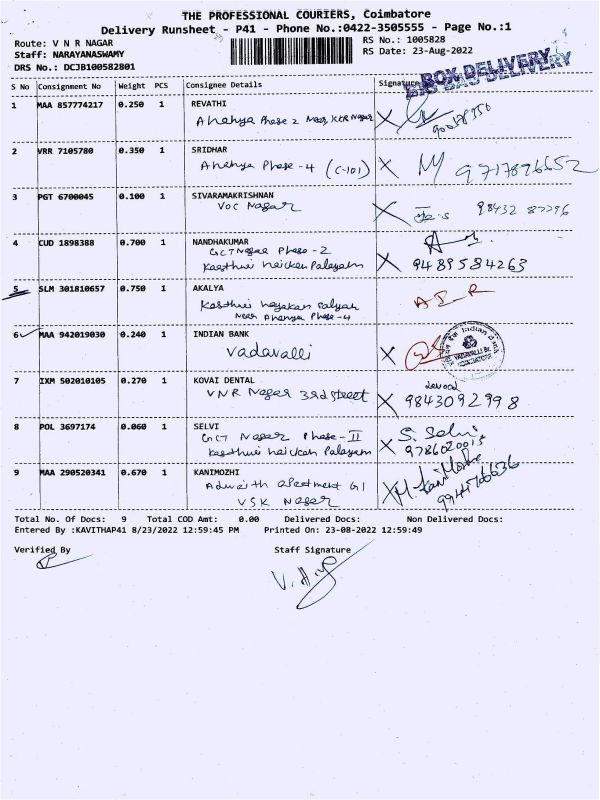 THE PROFESSIONAL COURIERS, Coimbatore
Delivery Runsheet - P41 - Phone No.:0422-3505555 - Page No.:1
Route: V N R NAGAR RS No.: 1005828
Staff: NARAYANASWAMY RS Date: 23-Aug-2022
DRS No.: DCJB100582801
BOX DELIVERY
S No Consignment No Weight PCS Consignee Details Signature
1 MAA 857774217 0.250 1 REVATHI
Ananya Phase 2 Near KKR Nagar
2 VRR 7105780 0.350 1 SRIDHAR
Ananya Phase - 4 (C-101) 9717896652
3 PGT 6700045 0.100 1 SIVARAMAKRISHNAN
VOC Nagar 98432 87296
4 CUD 1898388 0.700 1 NANDHAKUMAR
GCT Nagar Phase - 2
Kasthuri naicken Palayam 9489584263
5 SLM 301810657 0.750 1 AKALYA
Kasthuri nayakan Palyam
Near Ananya Phase - 4
6 MAA 942019030 0.240 1 INDIAN BANK
Vadavalli
7 IXM 502010105 0.270 1 KOVAI DENTAL
VNR Nagar 3rd street 9843092998
8 POL 3697174 0.060 1 SELVI
GCT Nagar Phase - II S. Selvi
Kasthuri naicken Palayam 9786020015
9 MAA 290520341 0.670 1 KANIMOZHI
Adwaith apartment G1 M. Kani Mozhi
VSK Nagar
Total No. Of Docs: 9 Total COD Amt: 0.00 Delivered Docs: Non Delivered Docs:
Entered By :KAVITHAP41 8/23/2022 12:59:45 PM Printed On: 23-08-2022 12:59:49
Verified By Staff Signature